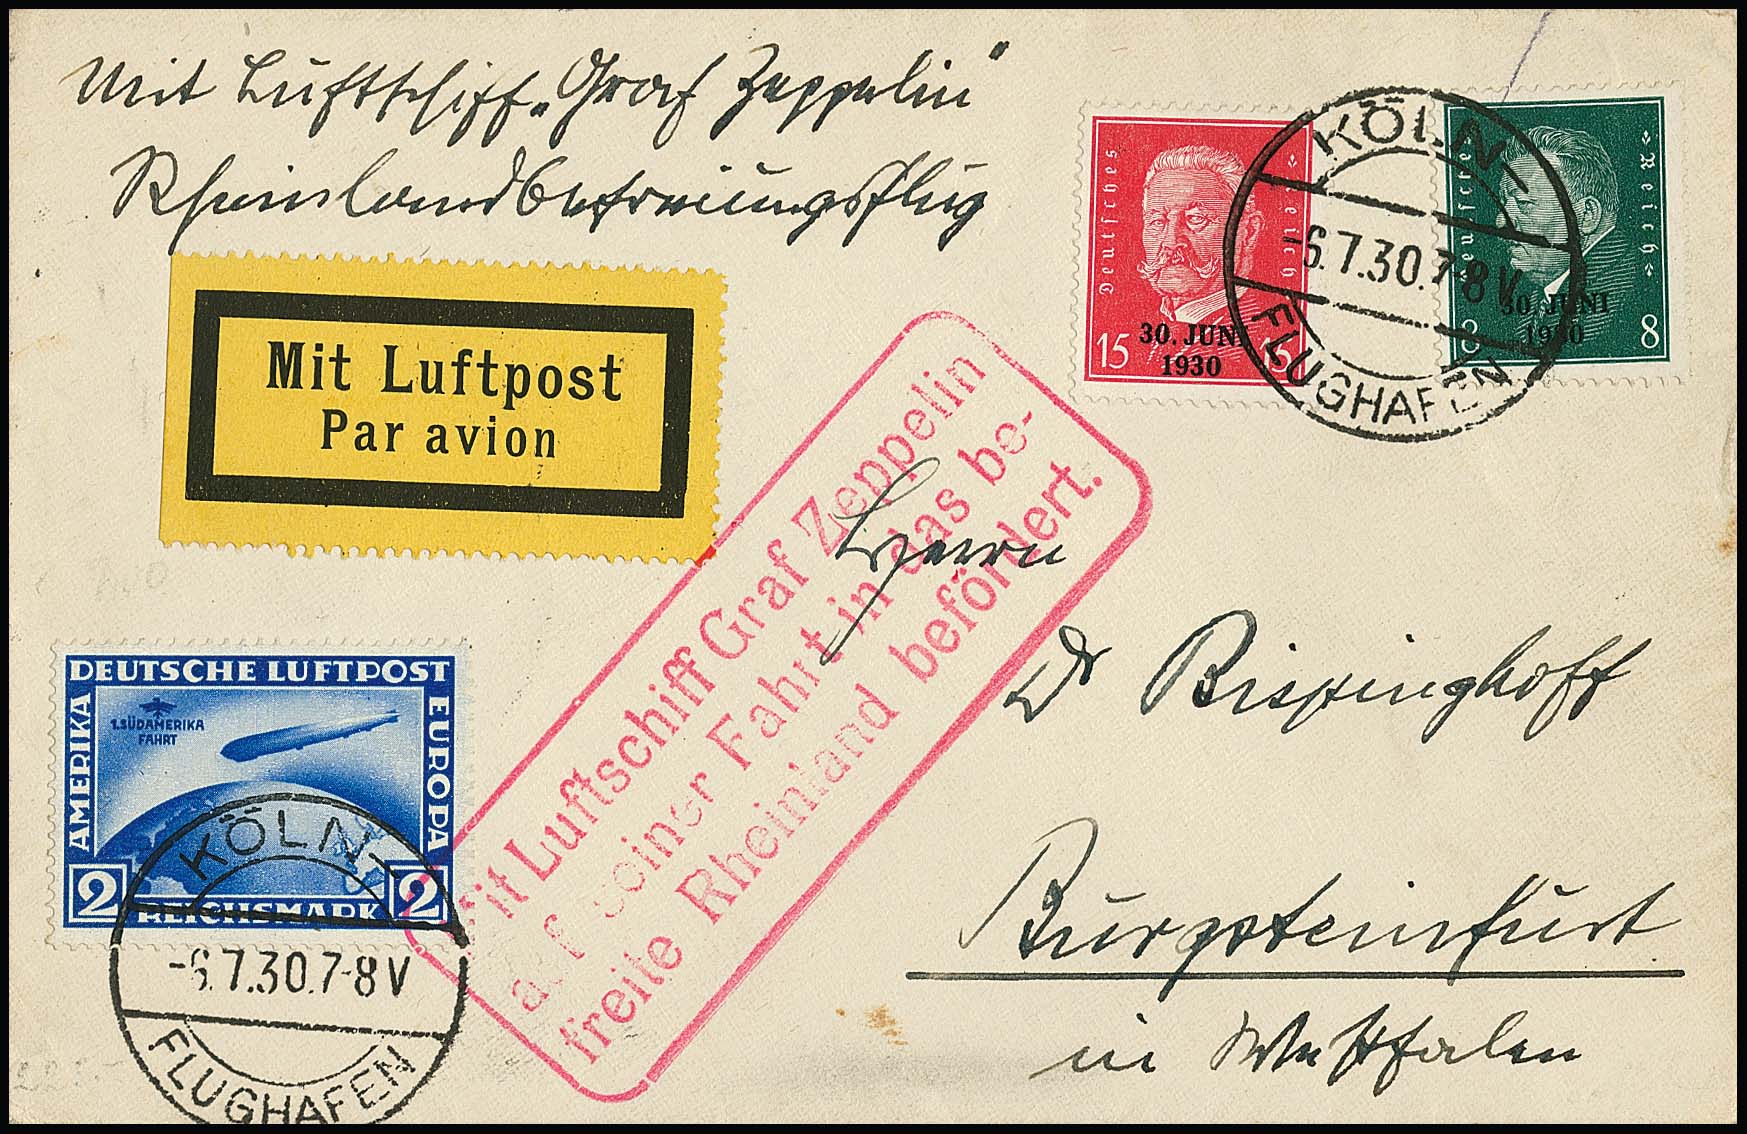 Mit Luftschiff „Graf Zeppelin“
Rheinlandbefreiungsflug
Mit Luftpost
Par avion
Deutsches Reich
15 15
30. JUNI
1930
Deutsches Reich
8 8
30. JUNI
1930
KÖLN-
-6.7.30.7-8V
FLUGHAFEN
Mit Luftschiff Graf Zeppelin
auf seiner Fahrt in das be-
freite Rheinland befördert.
Herrn
Dr Bispinghoff
Burgsteinfurt
in Westfalen
DEUTSCHE LUFTPOST
AMERIKA
EUROPA
1.SÜDAMERIKA
FAHRT
2 REICHSMARK 2
KÖLN-
-6.7.30.7-8V
FLUGHAFEN